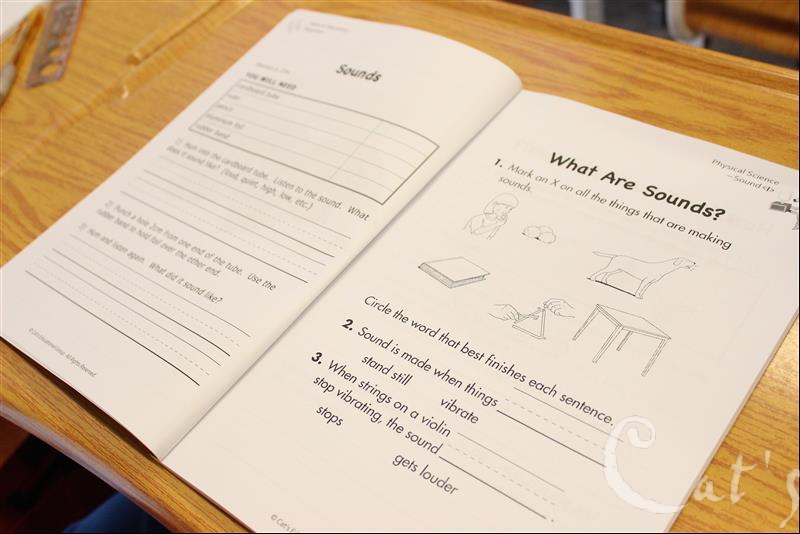 Sounds
YOU WILL NEED
cardboard tube
tube
pencil
aluminum foil
rubber band
1) Hum into the cardboard tube. Listen to the sound. What
does it sound like? (loud, quiet, high, low, etc.)
2) Punch a hole 2cm from one end of the tube. Use the
rubber band to hold foil over the other end.
3) Hum and listen again. What did it sound like?
Physical Science
– Sound
What Are Sounds?
1. Mark an X on all the things that are making
sounds.
Circle the word that best finishes each sentence.
2. Sound is made when things
stand still vibrate
3. When strings on a violin
stop vibrating, the sound
stops gets louder
© Cat's
Cat's